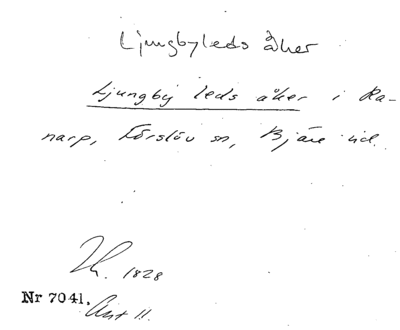 Ljungbyleds åker
Ljungby leds åker i Ra-
narp, Förslöv sn, Bjäre hd.
1828
Nr 7041. Akt 11.